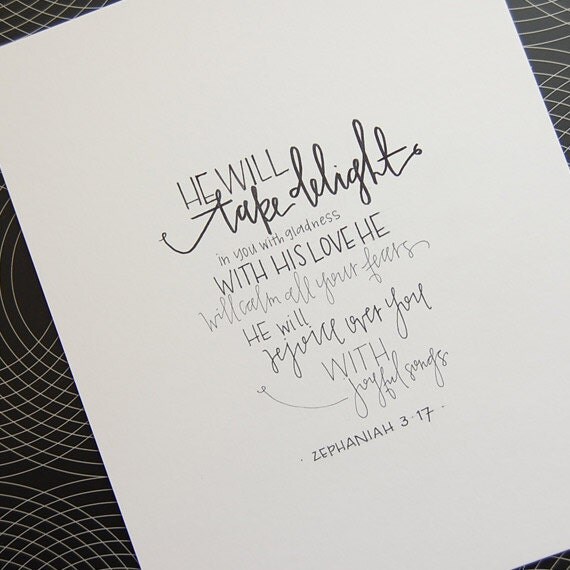 HE WILL
take delight
in you with gladness
WITH HIS LOVE HE
will calm all your fears
HE WILL
rejoice over you
WITH
joyful songs
· ZEPHANIAH 3·17 ·